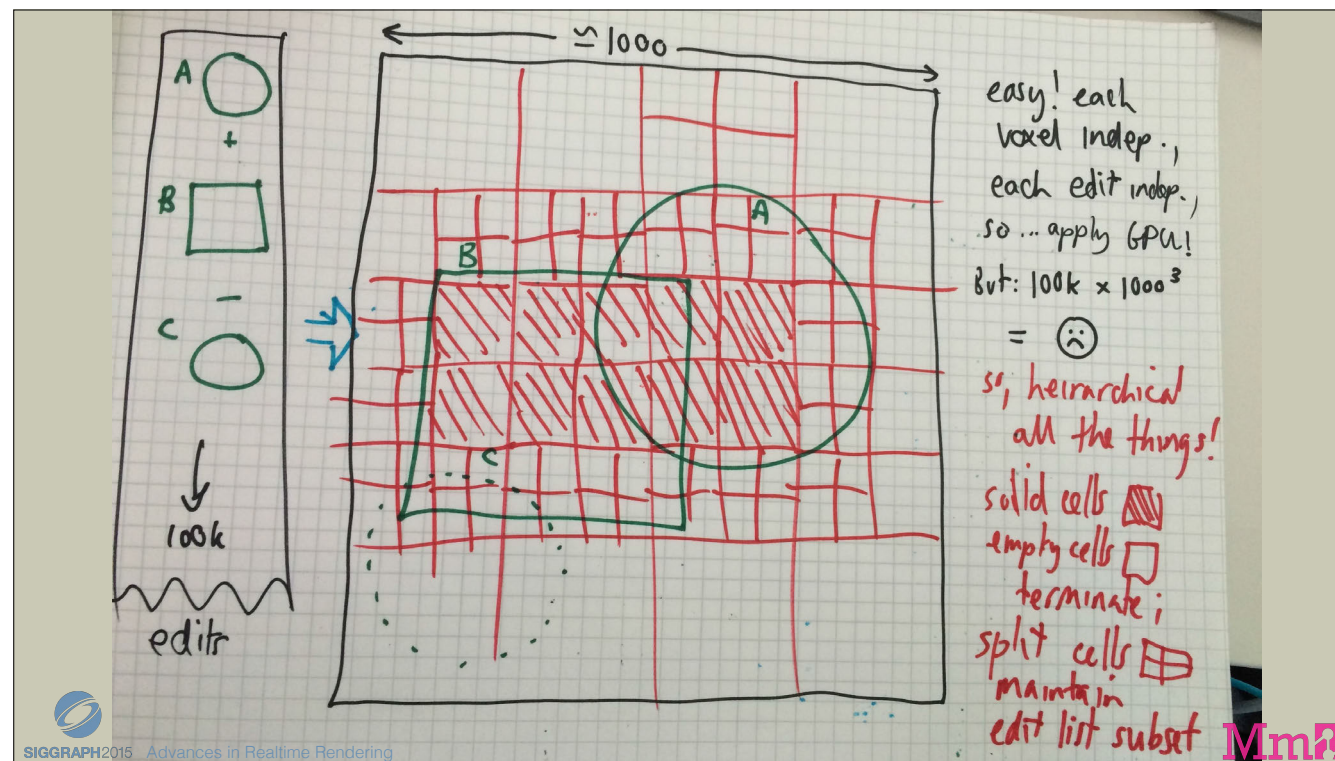 A
+
B
−
C
100k
edits
≃ 1000
A
B
C
easy! each
voxel indep.,
each edit indep.,
so... apply GPU!
But: 100k x 1000³
= ☹
so, heirarchical
all the things!
solid cells
empty cells
terminate;
split cells
maintain
edit list subset
SIGGRAPH2015 Advances in Realtime Rendering
Mm